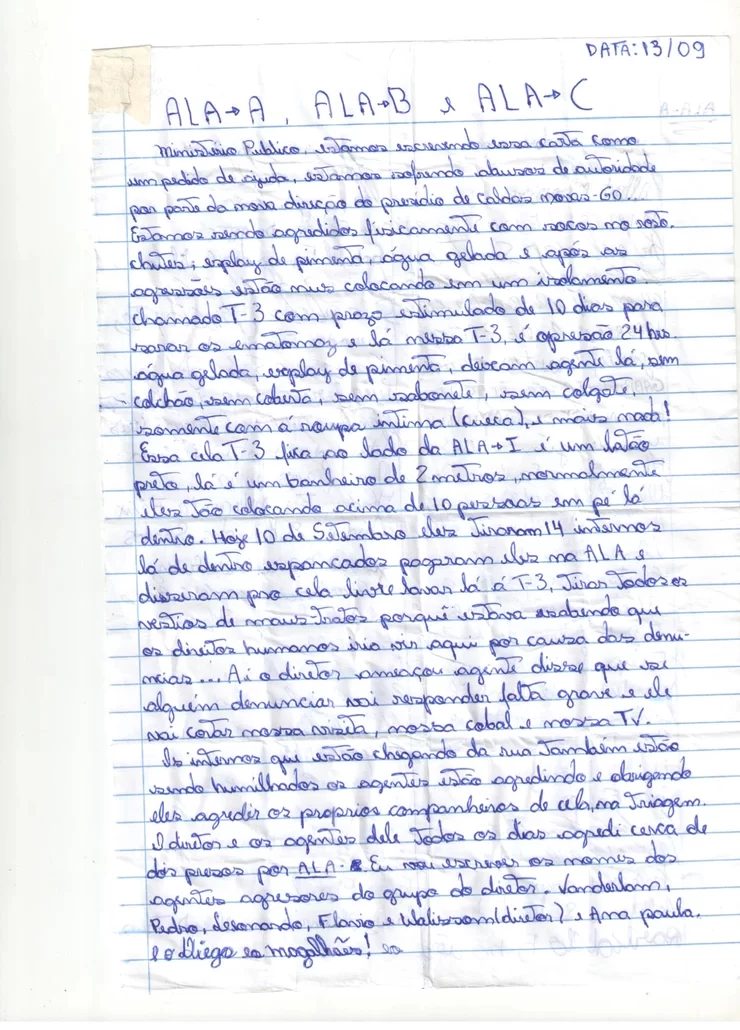 DATA: 13/09
ALA→A, ALA→B e ALA→C
Ministério Publico, estamos escrevendo essa carta como
um pedido de ajuda, estamos sofrendo abusos de autoridade
por parte da nova direção do presidio de caldas novas-GO...
Estamos sendo agredidos fisicamente com socos no rosto,
chutes, esplay de pimenta, água gelada e após as
agressões estão nus colocando em um isolamento
chamado T-3 com prazo estimulado de 10 dias para
sarar os ematomaz e lá nessa T-3, é opresão 24 hrs.
água gelada, esplay de pimenta, deixam agente lá, sem
colchão, sem coberta, sem sabonete, sem colgate,
somente com á roupa intima (cueca), e mais nada!
Essa cela T-3 fica ao lado da ALA→I é um latão
preto, lá é um banheiro de 2 metros, normalmente
eles tão colocando acima de 10 pessoas em pé lá
dentro. Hoje 10 de Setembro eles tiraram 14 internos
lá de dentro espancados pogaram eles na ALA e
disseram pro cela livre lavar lá á T-3, tirar todos os
vestios de maus-tratos porquê estava sabendo que
os direitos humanos iria vir aqui por causa das denu-
ncias... Ai o diretor ameaçou agente disse que se
alguém denunciar vai responder falta grave e ele
vai cortar nossa visita, nossa cobal e nossa TV.
Os internos que estão chegando da rua também estão
sendo humilhados os agentes estão agredindo e obrigando
eles agredir os proprios companheiros de cela, na triagem.
O diretor e os agentes dele todos os dias agredi cerca de
dois presos por ALA. Eu vou escrever os nomes dos
agentes agresores do grupo do diretor. Vanderlam,
Pedro, Leonando, Flavio e Walissom (diretor) e Ana paula.
e o Diego es magalhães!